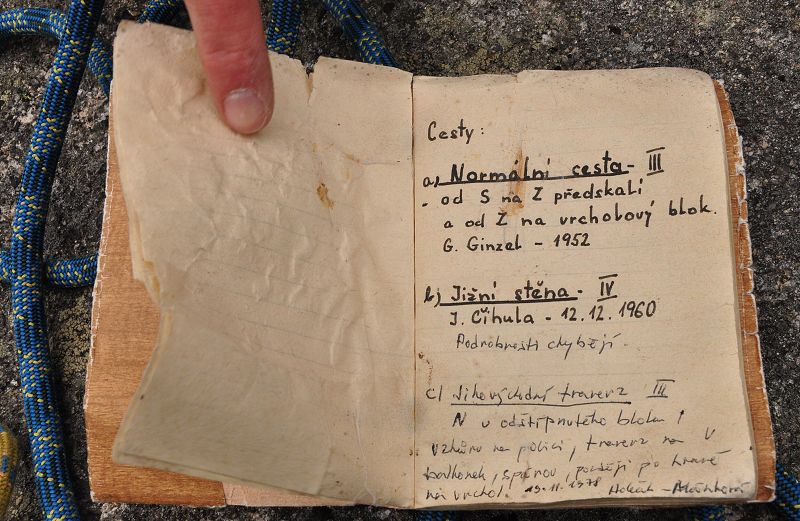 Cesty:
a) Normální cesta - III
- od S na Z předskalí
a od Z na vrcholový blok.
G. Ginzel - 1952
b) Jižní stěna - IV
J. Čihula - 12.12. 1960
Podrobnosti chybějí.
c) Jihovýchodní traverz III
N u odštípnutého bloku!
Vzhůru na polici, traverz na V
balkonek, spárou, později po hraně
na vrchol. 19.11.1978